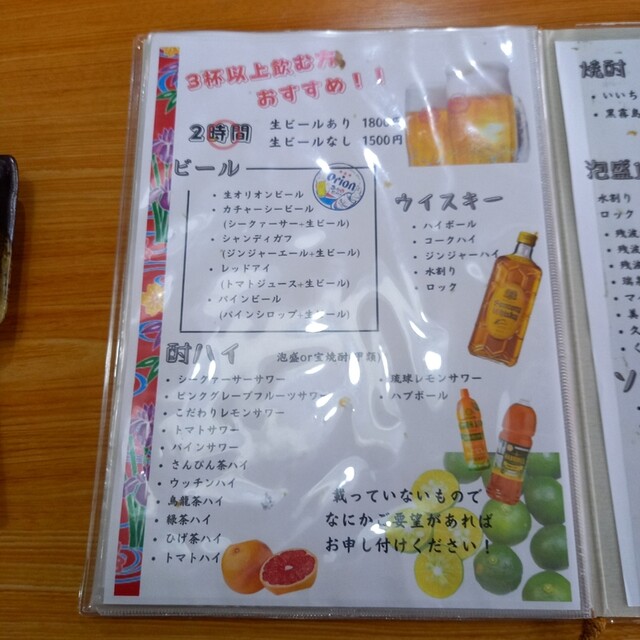 3杯以上飲む方
おすすめ！！
2時間
生ビールあり 1800円
生ビールなし 1500円
ビール
Orion
・生オリオンビール
・カチャーシービール
(シークァーサー+生ビール)
・シャンディガフ
(ジンジャーエール+生ビール)
・レッドアイ
(トマトジュース+生ビール)
・パインビール
(パインシロップ+生ビール)
ウイスキー
・ハイボール
・コークハイ
・ジンジャーハイ
・水割り
・ロック
酎ハイ
泡盛or宝焼酎(甲類)
・シークァーサーサワー
・ピンクグレープフルーツサワー
・こだわりレモンサワー
・トマトサワー
・パインサワー
・さんぴん茶ハイ
・ウッチンハイ
・烏龍茶ハイ
・緑茶ハイ
・ひげ茶ハイ
・トマトハイ
・琉球レモンサワー
・ハブボール
載っていないもので
なにかご要望があれば
お申し付けください！
焼酎
・いいち
・黒霧島
泡盛
水割り
ロック
・残波
・残波
・残波
・瑞
・マ
・美
・久
・く
ソ